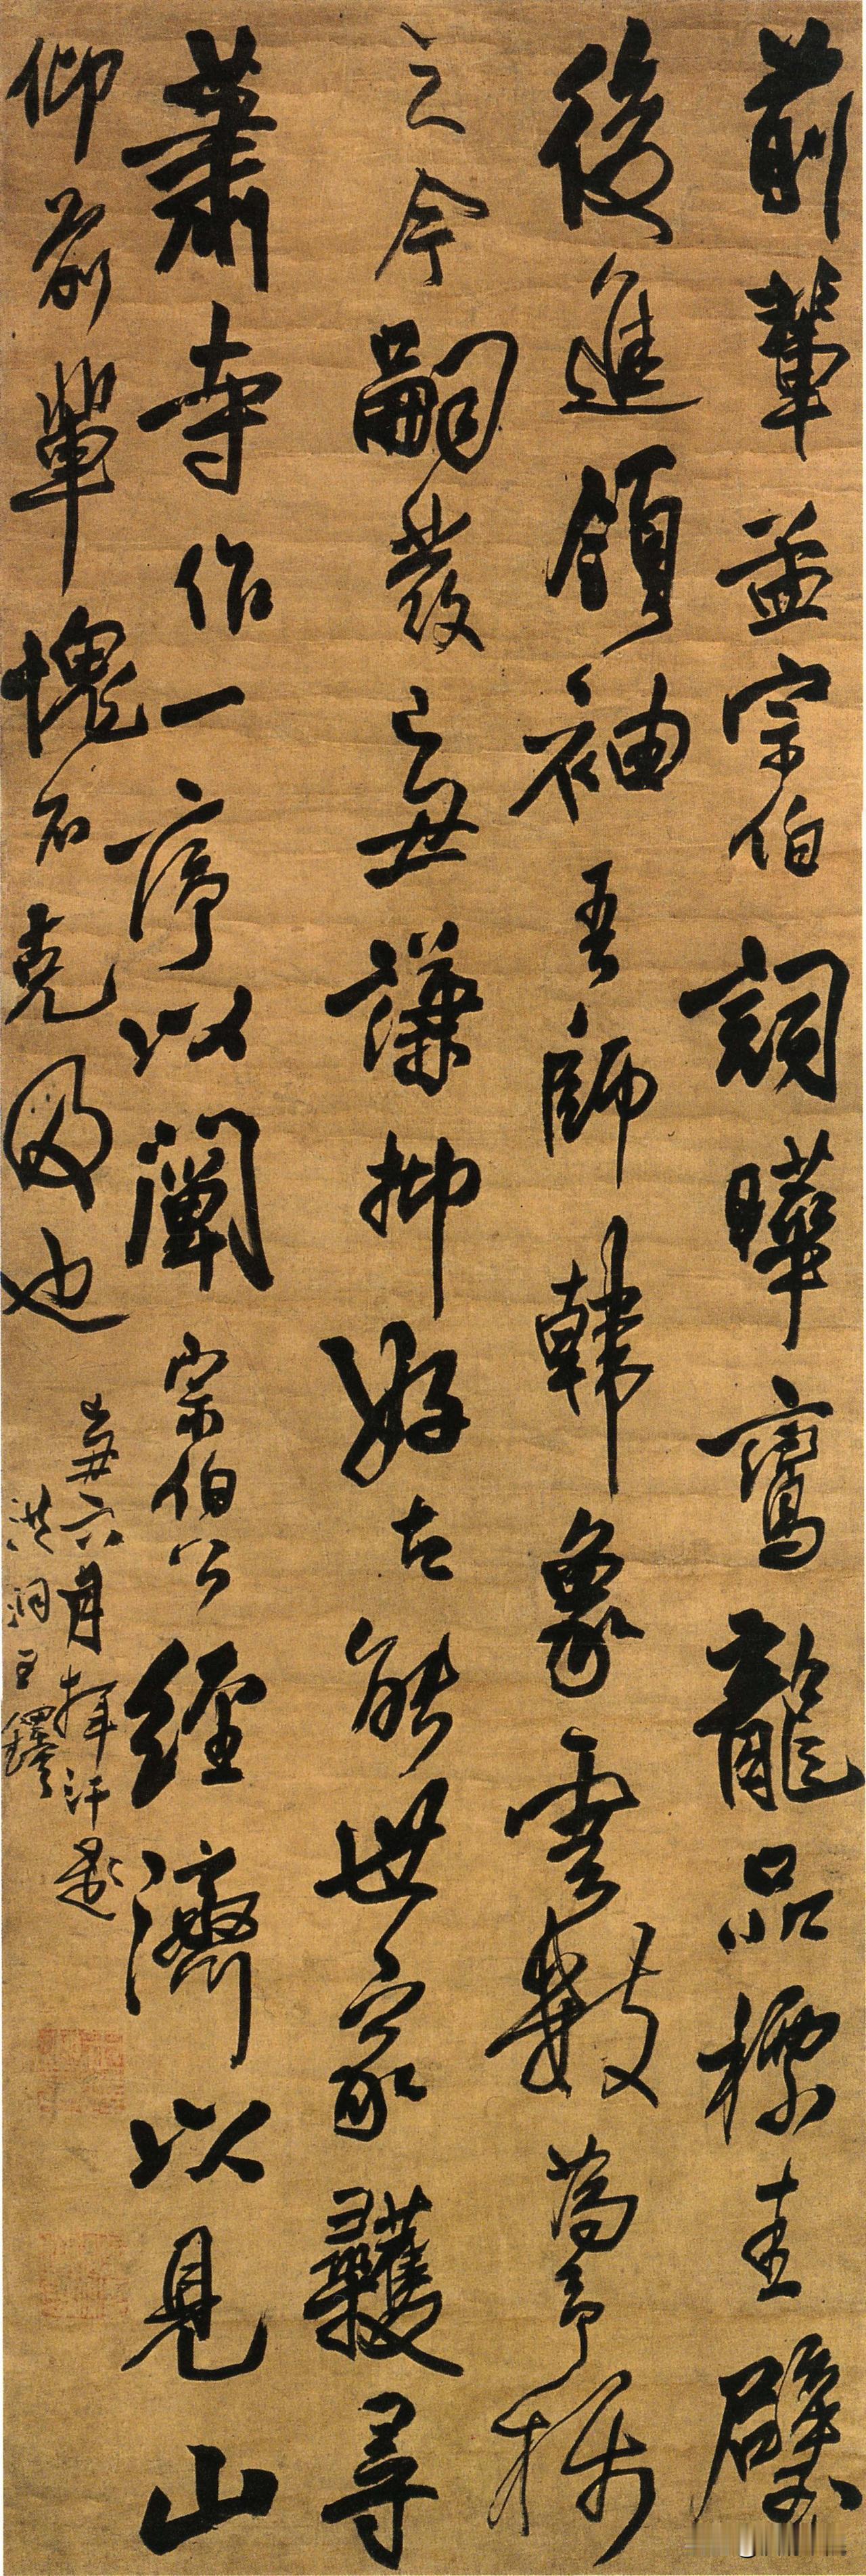 前輩孟宗伯詞曄鸞龍品標圭璧
後進領袖吾師韓象雲數為予稱
之今嗣發已丑謙抑好古能世家護尋
蕭寺作一序以闡宗伯公經濟以見山
仰前輩愧不克及也
丑六月揮汗題
洪洞王鐸